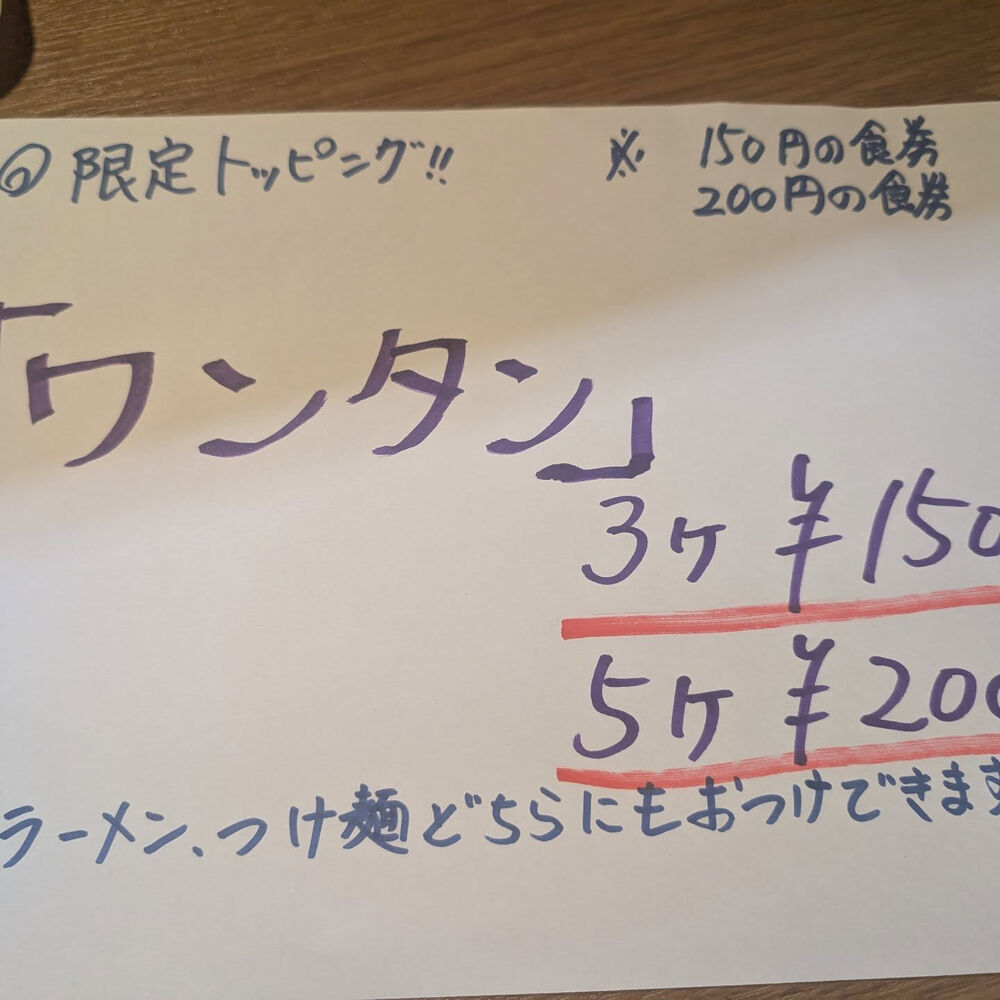 ◎ 限定トッピング!!
※ 150円の食券
200円の食券
「ワンタン」
3ヶ ¥150
5ヶ ¥200
ラーメン、つけ麺どちらにもおつけできます